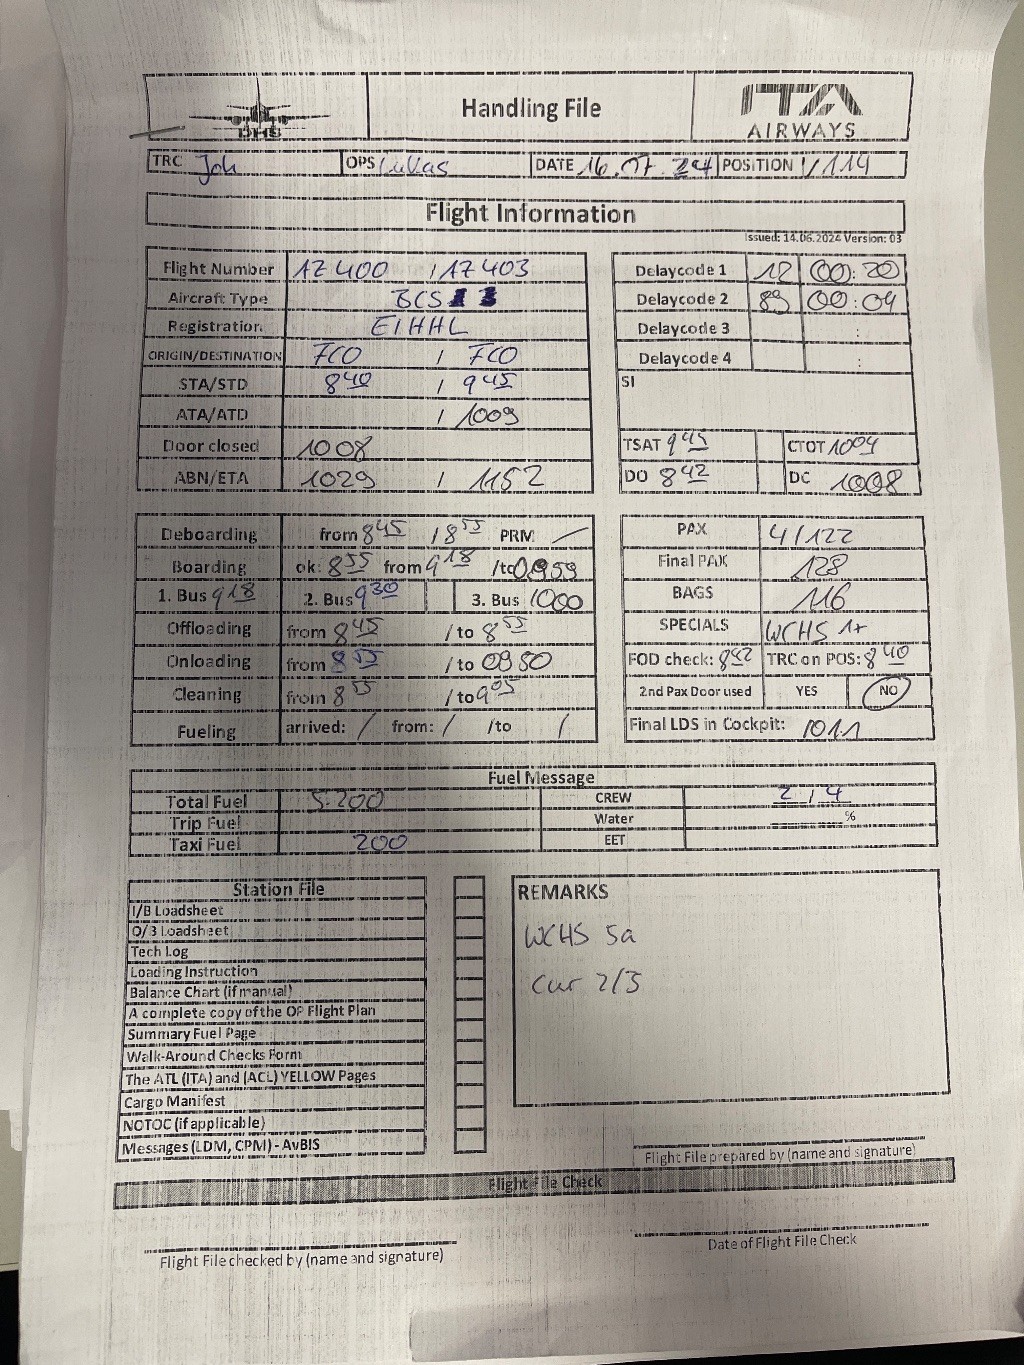 DHS
Handling File
ITA
AIRWAYS
TRC Joh OPS Lukas DATE 16.07.24 POSITION V114
Flight Information
Issued: 14.06.2024 Version: 03
Flight Number AZ 400 / AZ 403
Aircraft Type BCS
Registration EIHHL
ORIGIN/DESTINATION FCO / FCO
STA/STD 840 / 945
ATA/ATD / 1009
Door closed 1008
ABN/ETA 1029 / 1152
Delaycode 1 12 00:20
Delaycode 2 89 00:04
Delaycode 3 :
Delaycode 4 :
SI
TSAT 945 CTOT 1004
DO 842 DC 1008
Deboarding from 845 / 855 PRM /
Boarding ok: 855 from 918 /to 0959
1. Bus 918 2. Bus 930 3. Bus 1000
Offloading from 845 / to 855
Onloading from 855 / to 0950
Cleaning from 855 / to 905
Fueling arrived: / from: / /to /
PAX 4/122
Final PAX 128
BAGS 116
SPECIALS WCHS 1x
FOD check: 842 TRC on POS: 840
2nd Pax Door used YES NO
Final LDS in Cockpit: 1011
Fuel Message
Total Fuel 5.200 CREW 2 / 4
Trip Fuel Water %
Taxi Fuel 200 EET
Station File
I/B Loadsheet
O/B Loadsheet
Tech Log
Loading Instruction
Balance Chart (if manual)
A complete copy of the OP Flight Plan
Summary Fuel Page
Walk-Around Checks Form
The ATL (ITA) and (ACL) YELLOW Pages
Cargo Manifest
NOTOC (if applicable)
Messages (LDM, CPM) - AvBIS
REMARKS
WCHS 5a
2/3
Flight File prepared by (name and signature)
Flight File Check
Flight File checked by (name and signature)
Date of Flight File Check